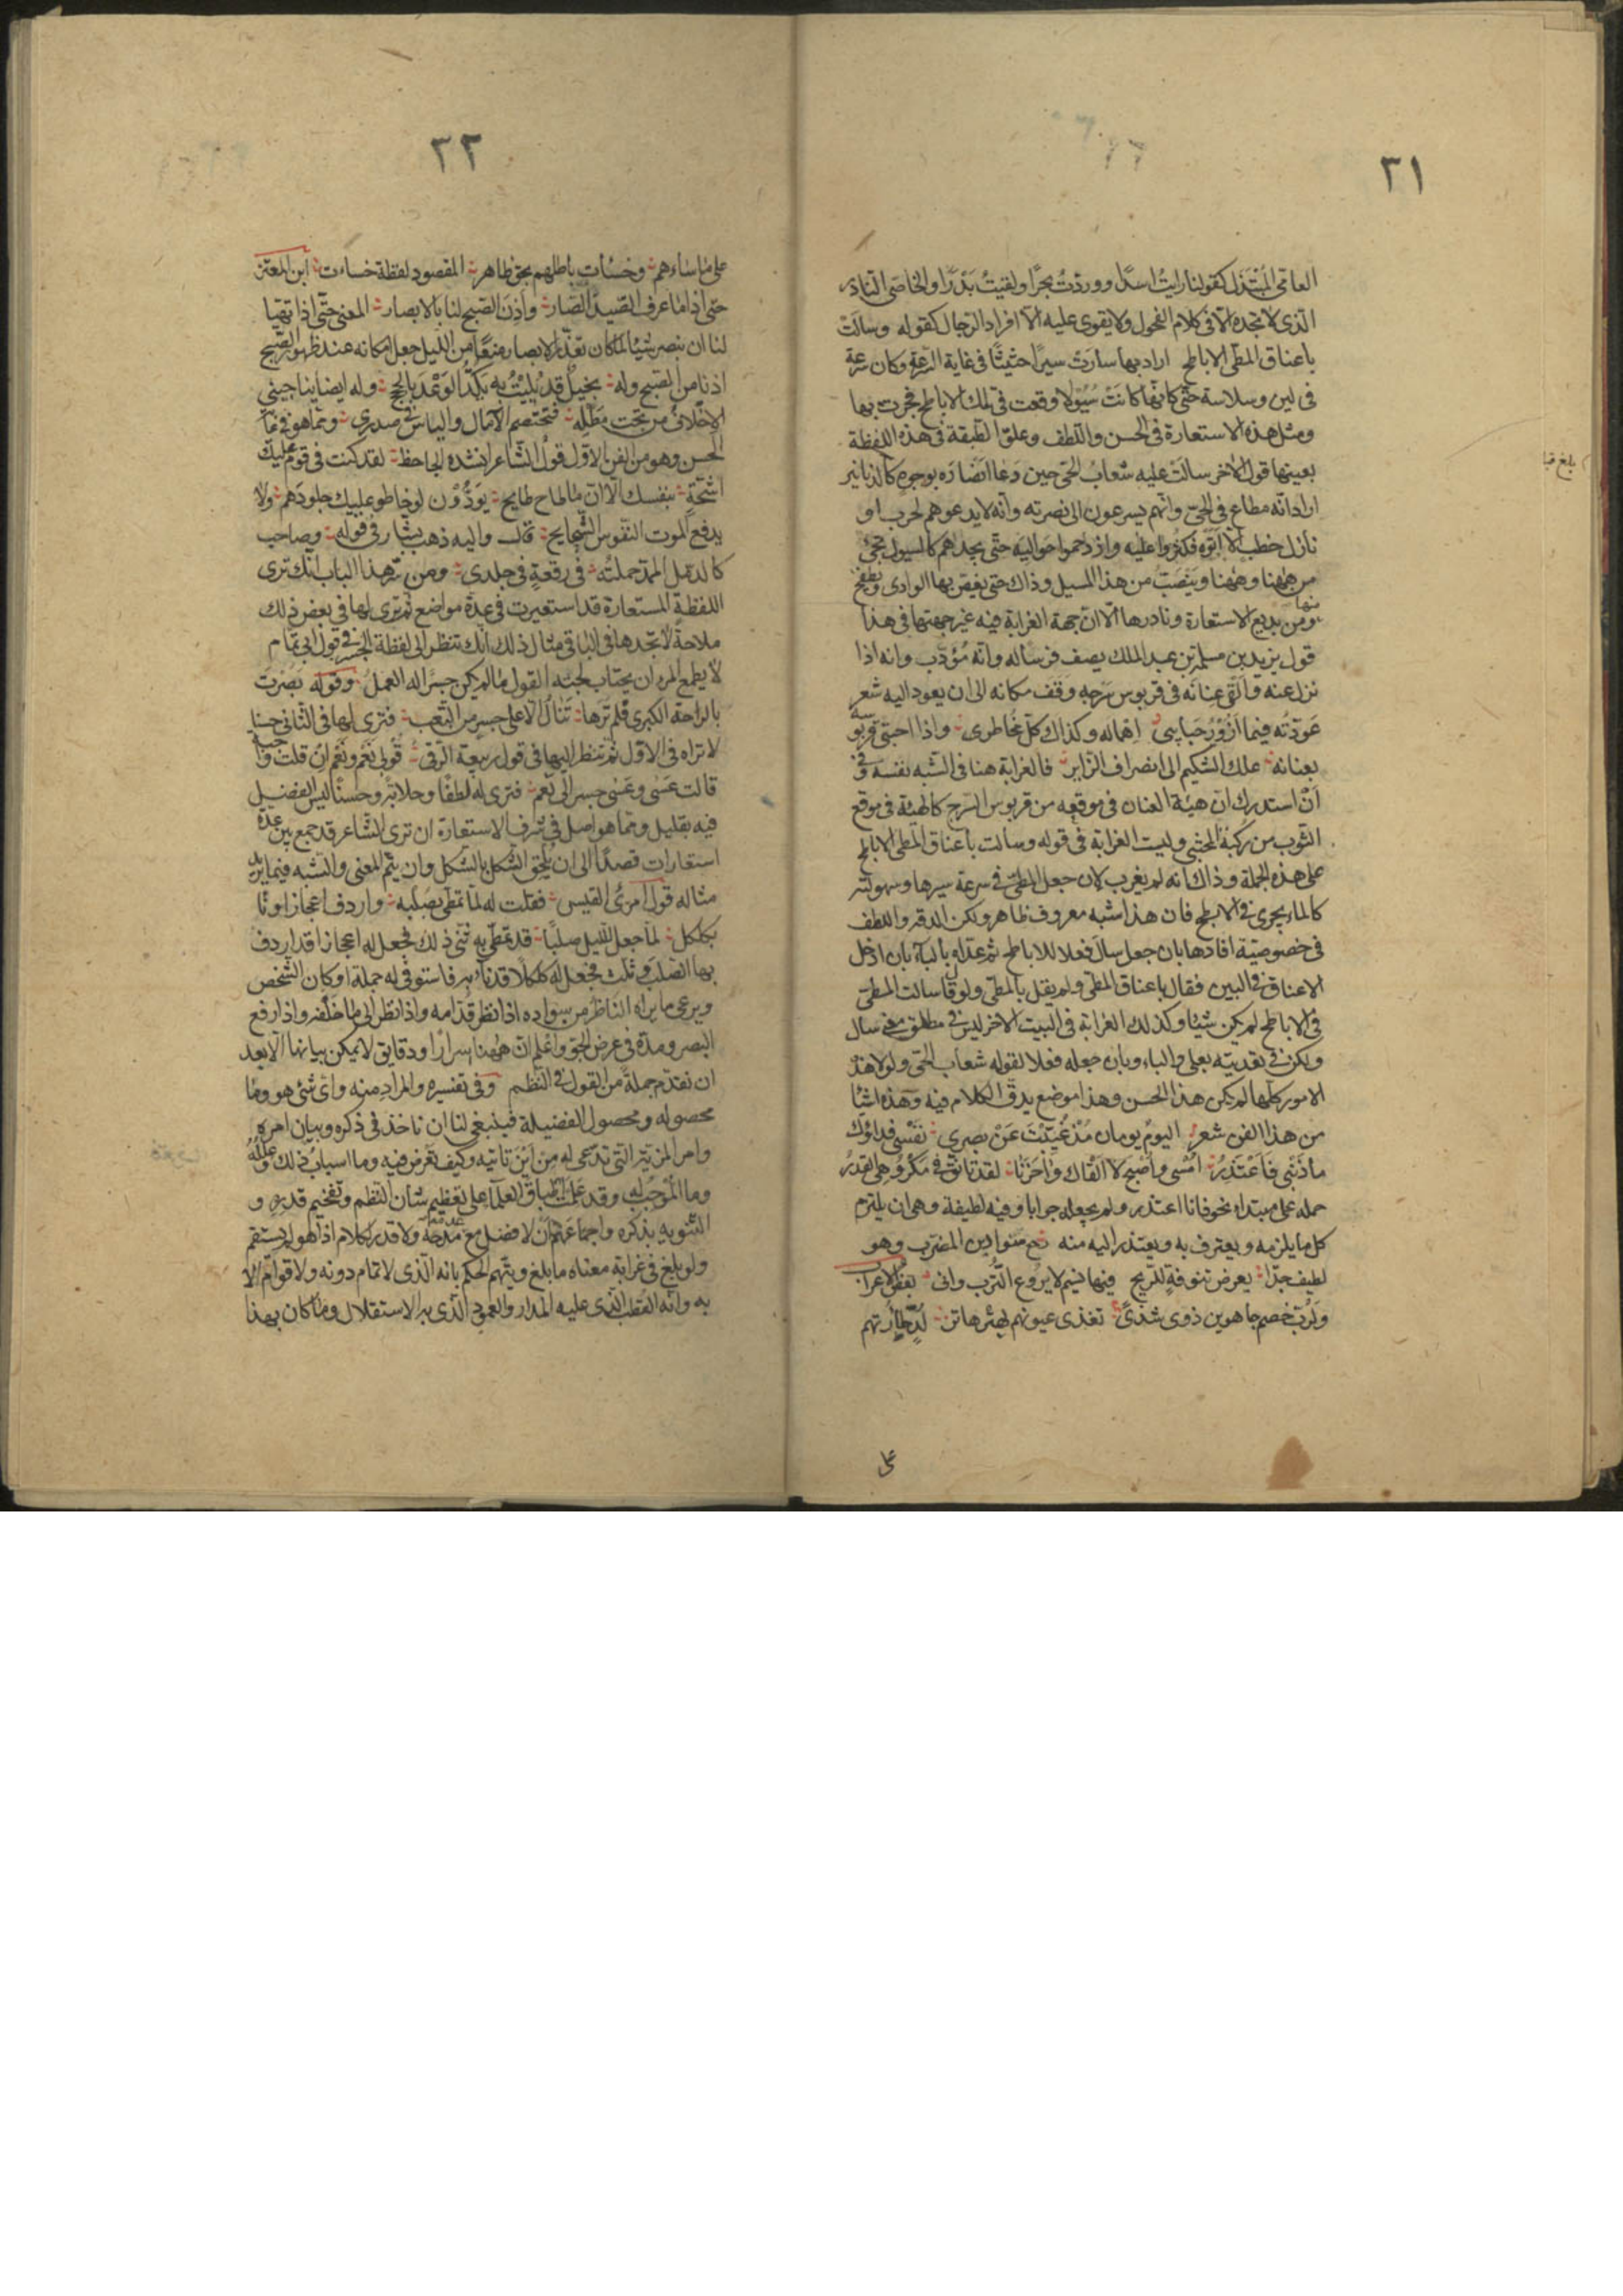 ٣١
العامى المبتذل كقولنا رايتُ اسدًا ووردتُ بحرًا ولقيتُ بَدْرًا والخاصى النادر
الذى لا تجده الا فى كلام الفحول ولا يقوى عليه الا افراد الرجال كقوله وسالَتْ
باعناق المطى الاباطح اراد بها سارَتْ سيرًا حثيثًا فى غاية السرعة وكان سرعة
فى لين وسلاسة حتى كانها كانت سُيُولًا وقعت فى تلك الاباطح فجرت بها
ومثل هذه الاستعارة فى الحسن واللطف وعلو الطبقة فى هذه اللفظة
بعينها قول الاخر سالَتْ عليه شعابُ الحى حين دَعا انصارَه بوجوه كالدنانير
اراد انه مطاع فى الحى وانهم يسرعون الى نصرته وانه لا يدعوهم لحرب او
نازل خطب الا اتوه فكثروا عليه وازدحموا حواليه حتى يجدهم كالسيول تجئ
من ههنا وههنا وينصَبّ من هذا المسيل وذاك حتى يغص بها الوادى ويطفح
منها
ومن بديع الاستعارة ونادرها الا ان جهة الغرابة فيه غير جهتها فى هذا
قول يزيد بن مسلمة بن عبد الملك يصف فرسا له وانه مُؤدّب وانه اذا
نزل عنه وألقى عِنانَه فى قربوس سَرجِهِ وَقَف مكانه الى ان يعود اليه شعر
عَوّدتُه فيما أزُورُ حَبايبى اِهماله وكذاك كلّ مُخاطرى واذا احتبى قربوسه
بعنانه علك الشكيم الى انصراف الزاير فالغرابة هنا فى الشبه نفسه وفى
اَنْ استدرك ان هيئة العنان فى موقعه من قربوس السرج كالهيئة فى موقع
الثوب من رُكبة المحتبى وليست الغرابة فى قوله وسالت باعناق المطى الاباطح
على هذه الجملة وذاك انه لم يغرب لان جعل المطى فى سرعة سيرها وسهولته
كالماء يجرى فى الابطح فان هذا شبه معروف ظاهر ولكن الدقة واللطف
فى خصوصية افادها بان جعل سالَ فعلا للاباطح ثم عدّاه بالباء بان ادخل
الاعناق فى البين فقال باعناق المطى ولم يقل بالمطى ولو قال سالت المطى
فى الاباطح لم يكن شيئا وكذلك الغرابة فى البيت الاخر ليس فى مطلق معنى سال
ولكن فى تعديته بعلى والباء وبان جعله فعلا لقوله شعاب الحى ولولا هذه
الامور كلها لم يكن هذا الحسن وهذا موضع يدق الكلام فيه وهذه اشيا
من هذا الفن شعر اليومُ يومان مُذْ غُيّبْتَ عَنْ بصرى نفسى فداؤك
ما ذَنْبى فَاَعْتَذِرُ اُمْسى واُصْبح لا القاك وَاحَزَنا لقد تانَّقَ فى مَكْرُوهِىَ القَدَرُ
حمله على مبتداء نحو فانا اعتذر ولم يجعله جوابا وفيه لطيفة وهى ان يلتزم
كل ما يلزمه ويعترف به ويعتذر اليه منه سوار بن المضرب وهو
لطيف جدا بعرض تنوفةٍ للريح فيها نسيم لا يروع الترب وانى بعض الاعراب
ولرب خصم جاهدين ذوى شذى تقذى عيونهم بهتر هاتر لُدٍّ ظأرتهم
على
بلغ قبا
٣٢
على ما ساءهم وخسأت باطلهم بحق ظاهر المقصود لفظة خسات ابن المعتز
حتى اذا ما عرف الصيد الضار واَذِنَ الصبح لنا بالابصار المعنى حتى اذا تهيا
لنا ان نبصر شيئا لما كان تعذّر الابصار منعًا من الليل جعل امكانه عند ظهور الصبح
اذنا من الصبح وله بخيلٌ قد بُلِيْتُ به يكدّ الوَعْدَ بالحجج وله ايضا يناجينى
الاخلاف من تحت مَطْلِه فتختصم الآمال والياس فى صدرى ومما هو فى غاية
الحسن وهو من الفن الاول قول الشاعر انشده الجاحظ لقد كنت فى قوم عليك
اشحّةٍ بنفسك الا ان ما طاح طايح يَوَدُّوْن لو خاطو عليك جلودَهم ولا
يدفع الموت النفوس الشحايح قال واليه ذهب بشار فى قوله وصاحب
كالدمّل الممدّ حملته فى رقعةٍ فى جلدى ومن سر هذا الباب انك ترى
اللفظة المستعارة قد استعيرت فى عدة مواضع ثم ترى لها فى بعض ذلك
ملاحةً لا تجدها فى الباقى مثال ذلك انك تنظر الى لفظة الجسر فى قول ابى تمام
لا يطمع المرء ان يجتاب لجته القول ما لم يكن جسرا له العمل وقوله بَصُرْتَ
بالراحة الكبرى فلم ترها تنال الا على جسرٍ من التعب فترى لها فى الثانى حسنا
لا تراه فى الاول ثم تنظر اليها فى قول ربيعة الرقى قُولى نَعَم ونَعَم ان قلت واجبة
قالت عَسٰى وعَسٰى جسر الى نَعَم فترى له لطفًا وحلابةً وحسنًا ليس الفضل
فيه بقليل ومما هو اصل فى شرف الاستعارة ان ترى الشاعر قد جمع بين عدة
استعارات قصدًا الى ان يُلحِق الشكل بالشكل وان يتم المعنى والشبه فيما يريد
مثاله قول امرئ القيس فقلت له لما تمطى بصلبه واردف اعجازا وناء
بكلكل لما جعل لليل صلبًا قد تمطّى به ثنّى ذلك فجعل له اعجازا قد اردف
بها الصلب وثلث فجعل له كلكلا قد ناء به فاستوفى له جملة اركان الشخص
ويرعى ما يراه الناظر من سواده اذا نظر قدّامه واذا نظر الى ما خلفه واذا رفع
البصر ومدّه فى عرض الجو واعلم ان ههنا اسرارا ودقايق لا يمكن بيانها الا بعد
ان نقدّم جملةً من القول فى النظم وفى تفسيره والمراد منه واى شئ هو وما
محصوله ومحصول الفضيلة فينبغى لنا ان ناخذ فى ذكره وبيان امره
وامر المزية التى تدّعى له من اين تاتيه وكيف تعرض فيه وما اسباب ذلك وعلله
وما المُوْجِبُ له وقد عَلِمْت اطباق العلماء على تعظيم شان النظم وتفخيم قدره و
التنويه بذكره واجماعهم ان لا فضل مع عدمه ولا قدر لكلام اذا هو لم يستقم
ولو بلغ فى غرابة معناه ما بلغ وبتّهم الحكم بانه الذى لا تمام دونه ولا قوام الا
به وانه القطب الذى عليه المدار والعمود الذى به الاستقلال وما كان بهذا